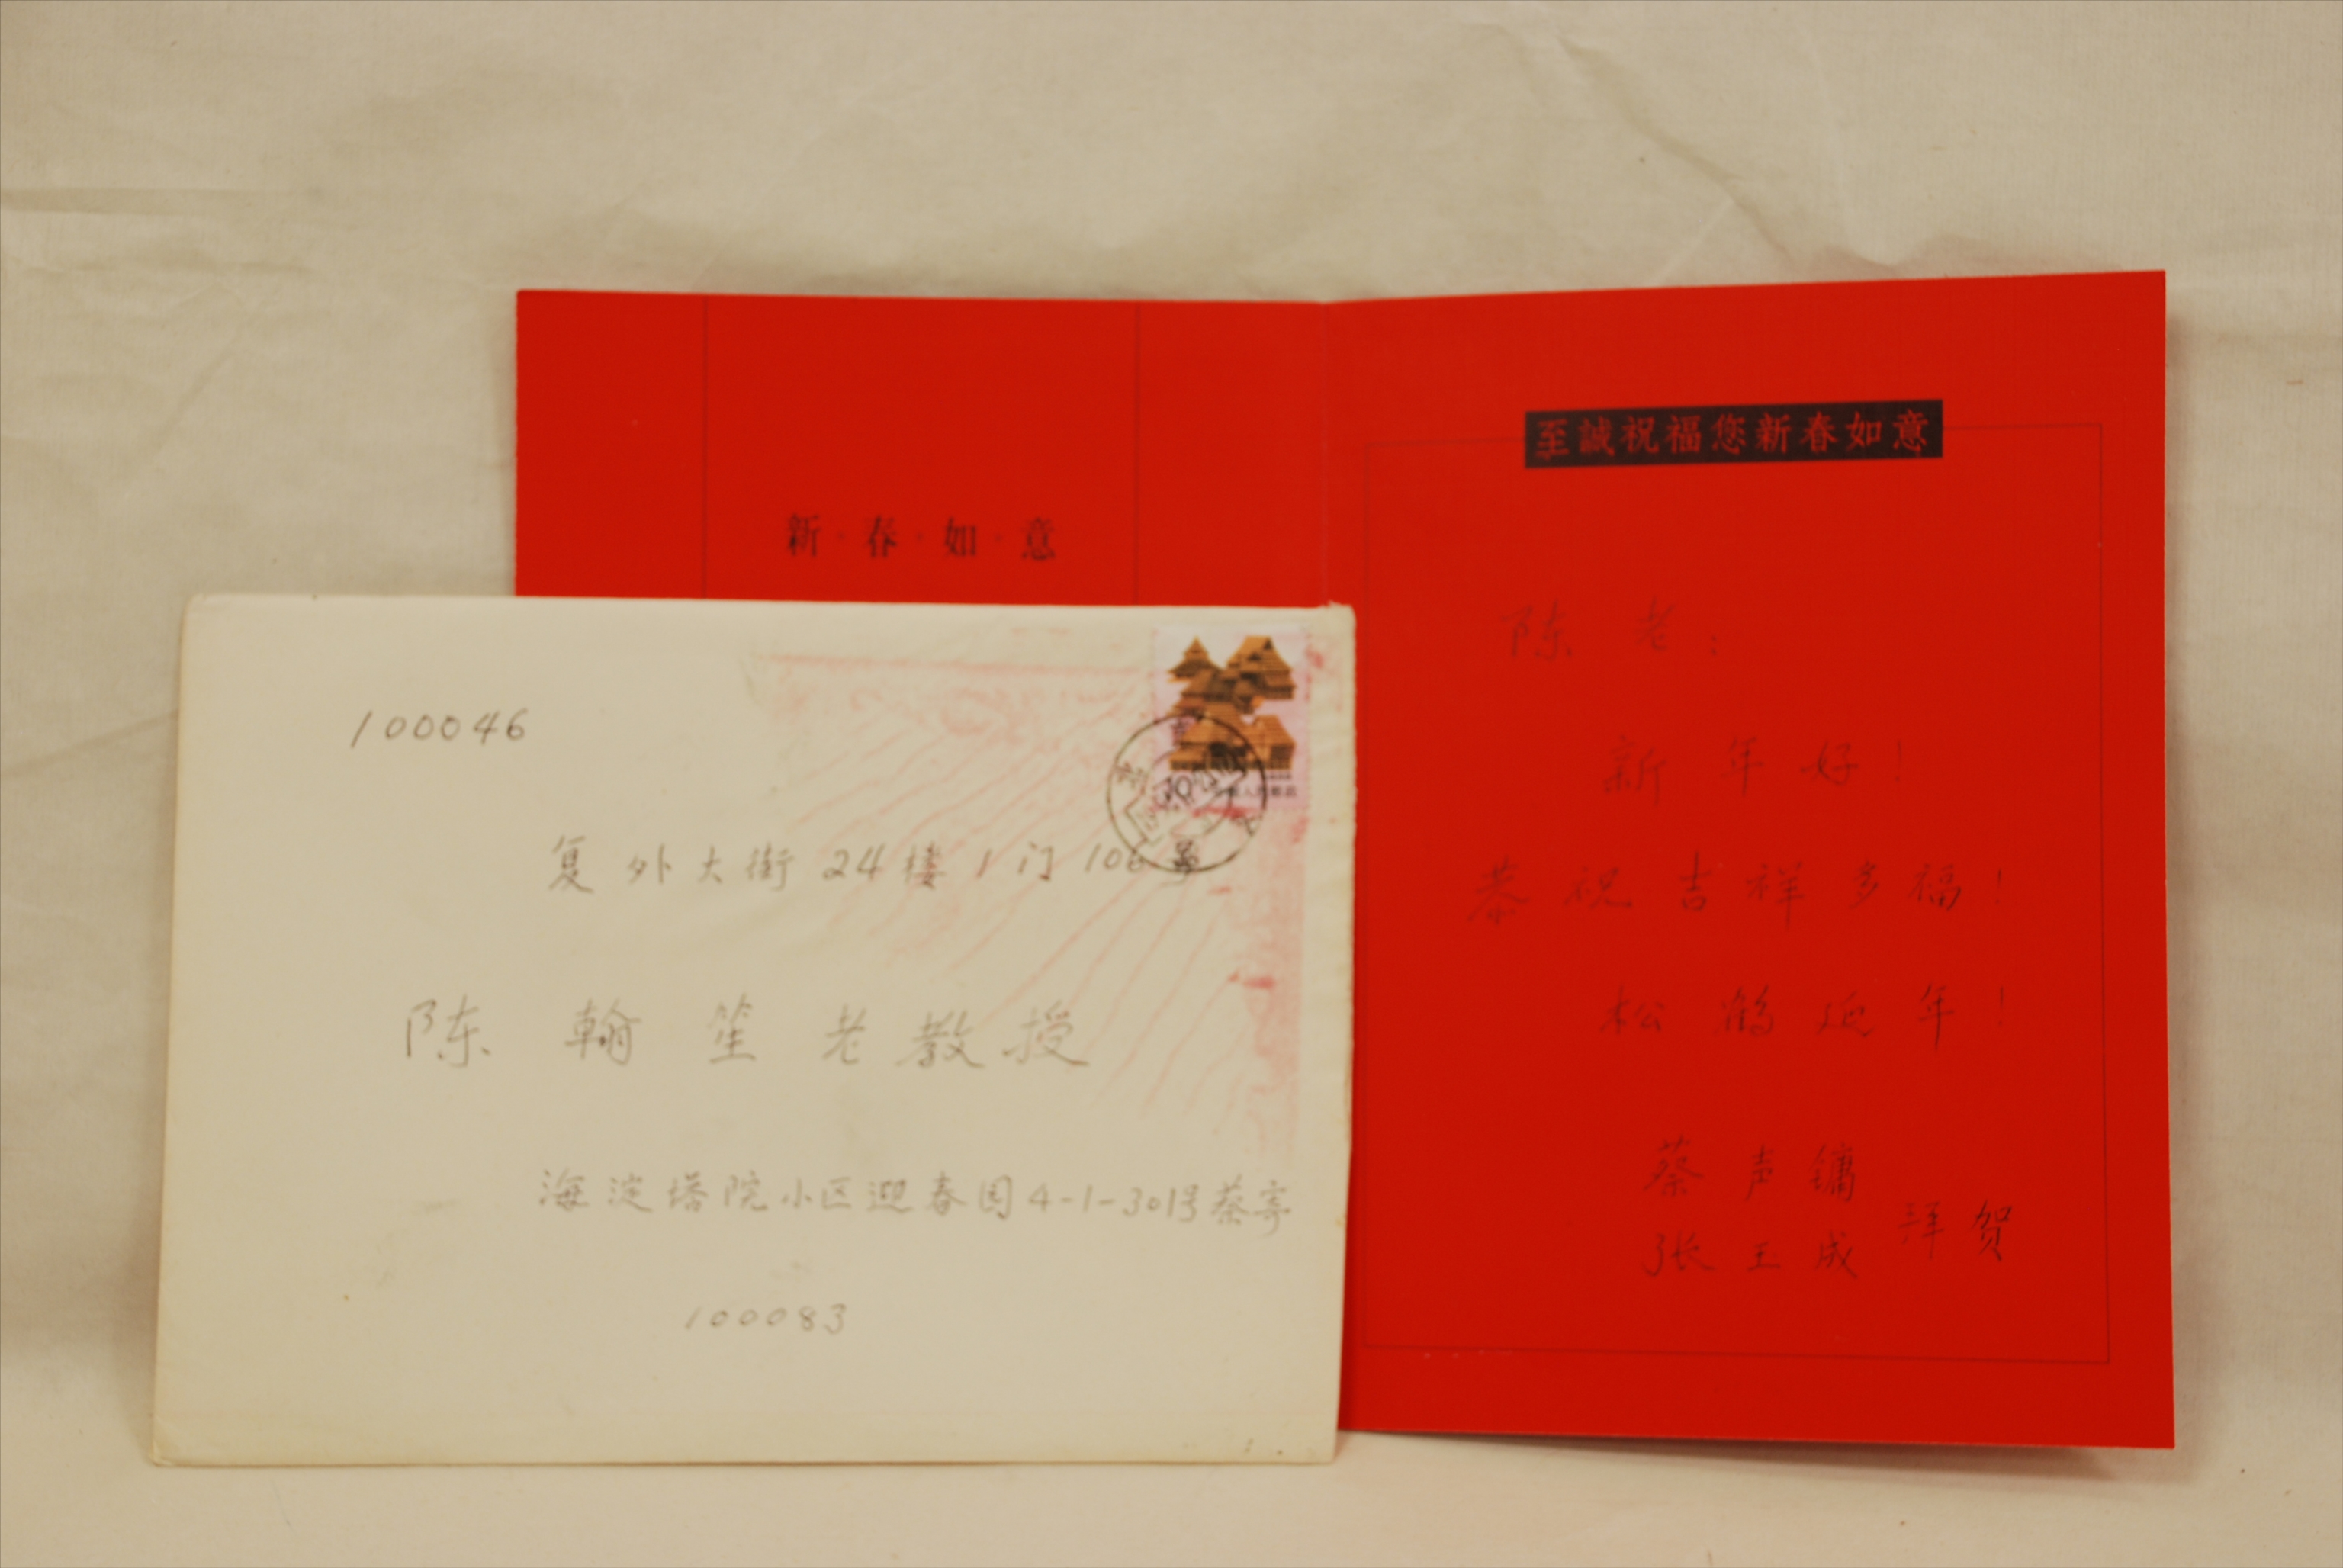 新·春·如·意
至誠祝福您新春如意
陈老:
新年好!
恭祝吉祥多福!
松鹤延年!
蔡声镛
张玉成 拜贺
100046
10
复外大街24楼1门106号
陈翰笙老教授
海淀塔院小区迎春园4-1-301号蔡寄
100083